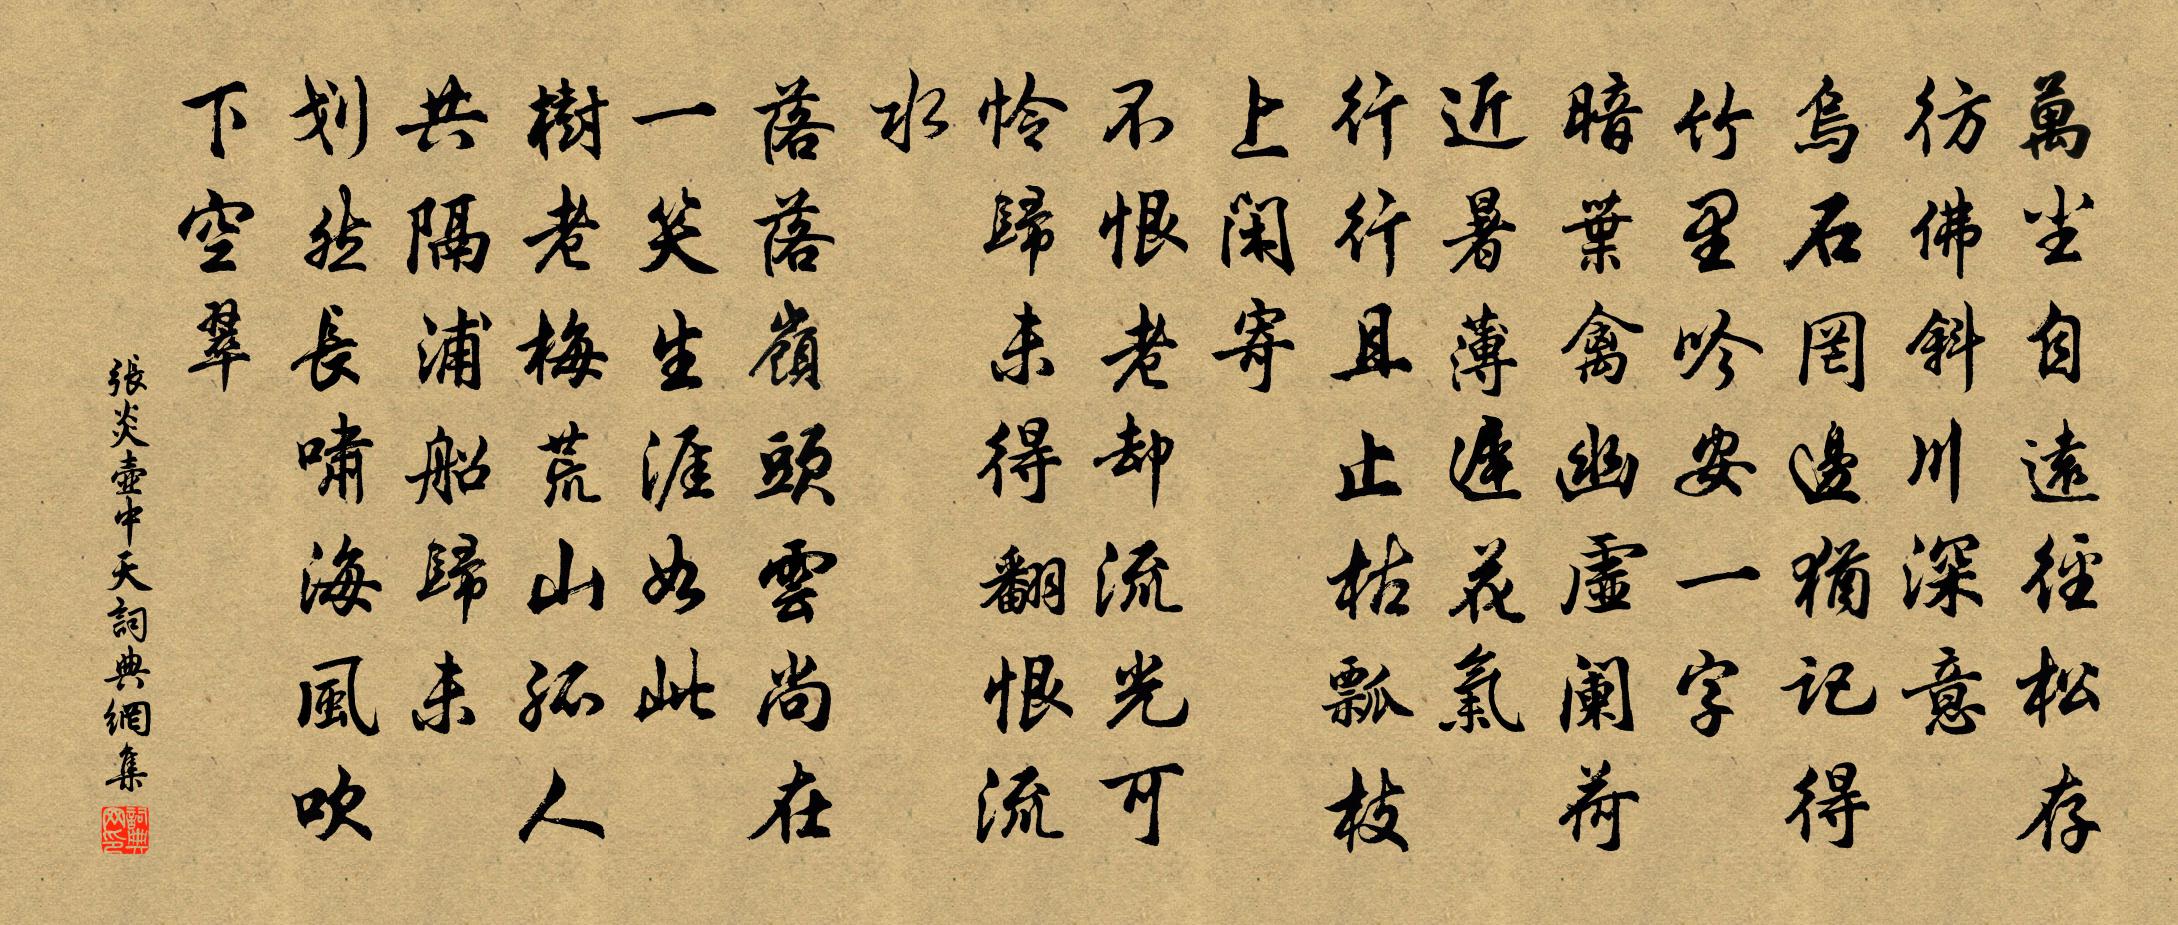 萬尘自遠徑松存
彷佛斜川深意
烏石罔邊猶記得
竹里吟安一字
暗葉禽幽虛闌荷
近暑薄遲花氣
行行且止枯瓢枝
上閑寄
不恨老却流光可
怜歸未得翻恨流
水
落落嶺頭雲尚在
一笑生涯如此
樹老梅荒山孤人
共隔浦船歸未
划然長嘯海風吹
下空翠
張炎壺中天詞典網集
詞典网印